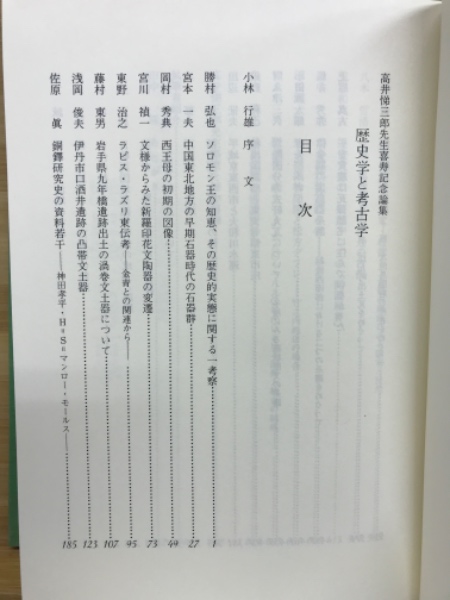 高井悌三郎先生喜寿記念論集
歴史学と考古学
目次
小林 行雄 序文
勝村 弘也 ソロモン王の知恵、その歴史的実態に関する一考察……1
宮本 一夫 中国東北地方の早期石器時代の石器群……27
岡村 秀典 西王母の初期の図像……49
宮川 禎一 文様からみた新羅印花文陶器の変遷……73
東野 治之 ラピス・ラズリ東伝考――金青との関連から――……95
藤村 東男 岩手県九年橋遺跡出土の渦巻文土器について……107
浅岡 俊夫 伊丹市口酒井遺跡の凸帯文土器……123
佐原 眞 銅鐸研究史の資料若干――神田孝平・H=S=マンロー・モールス――……185